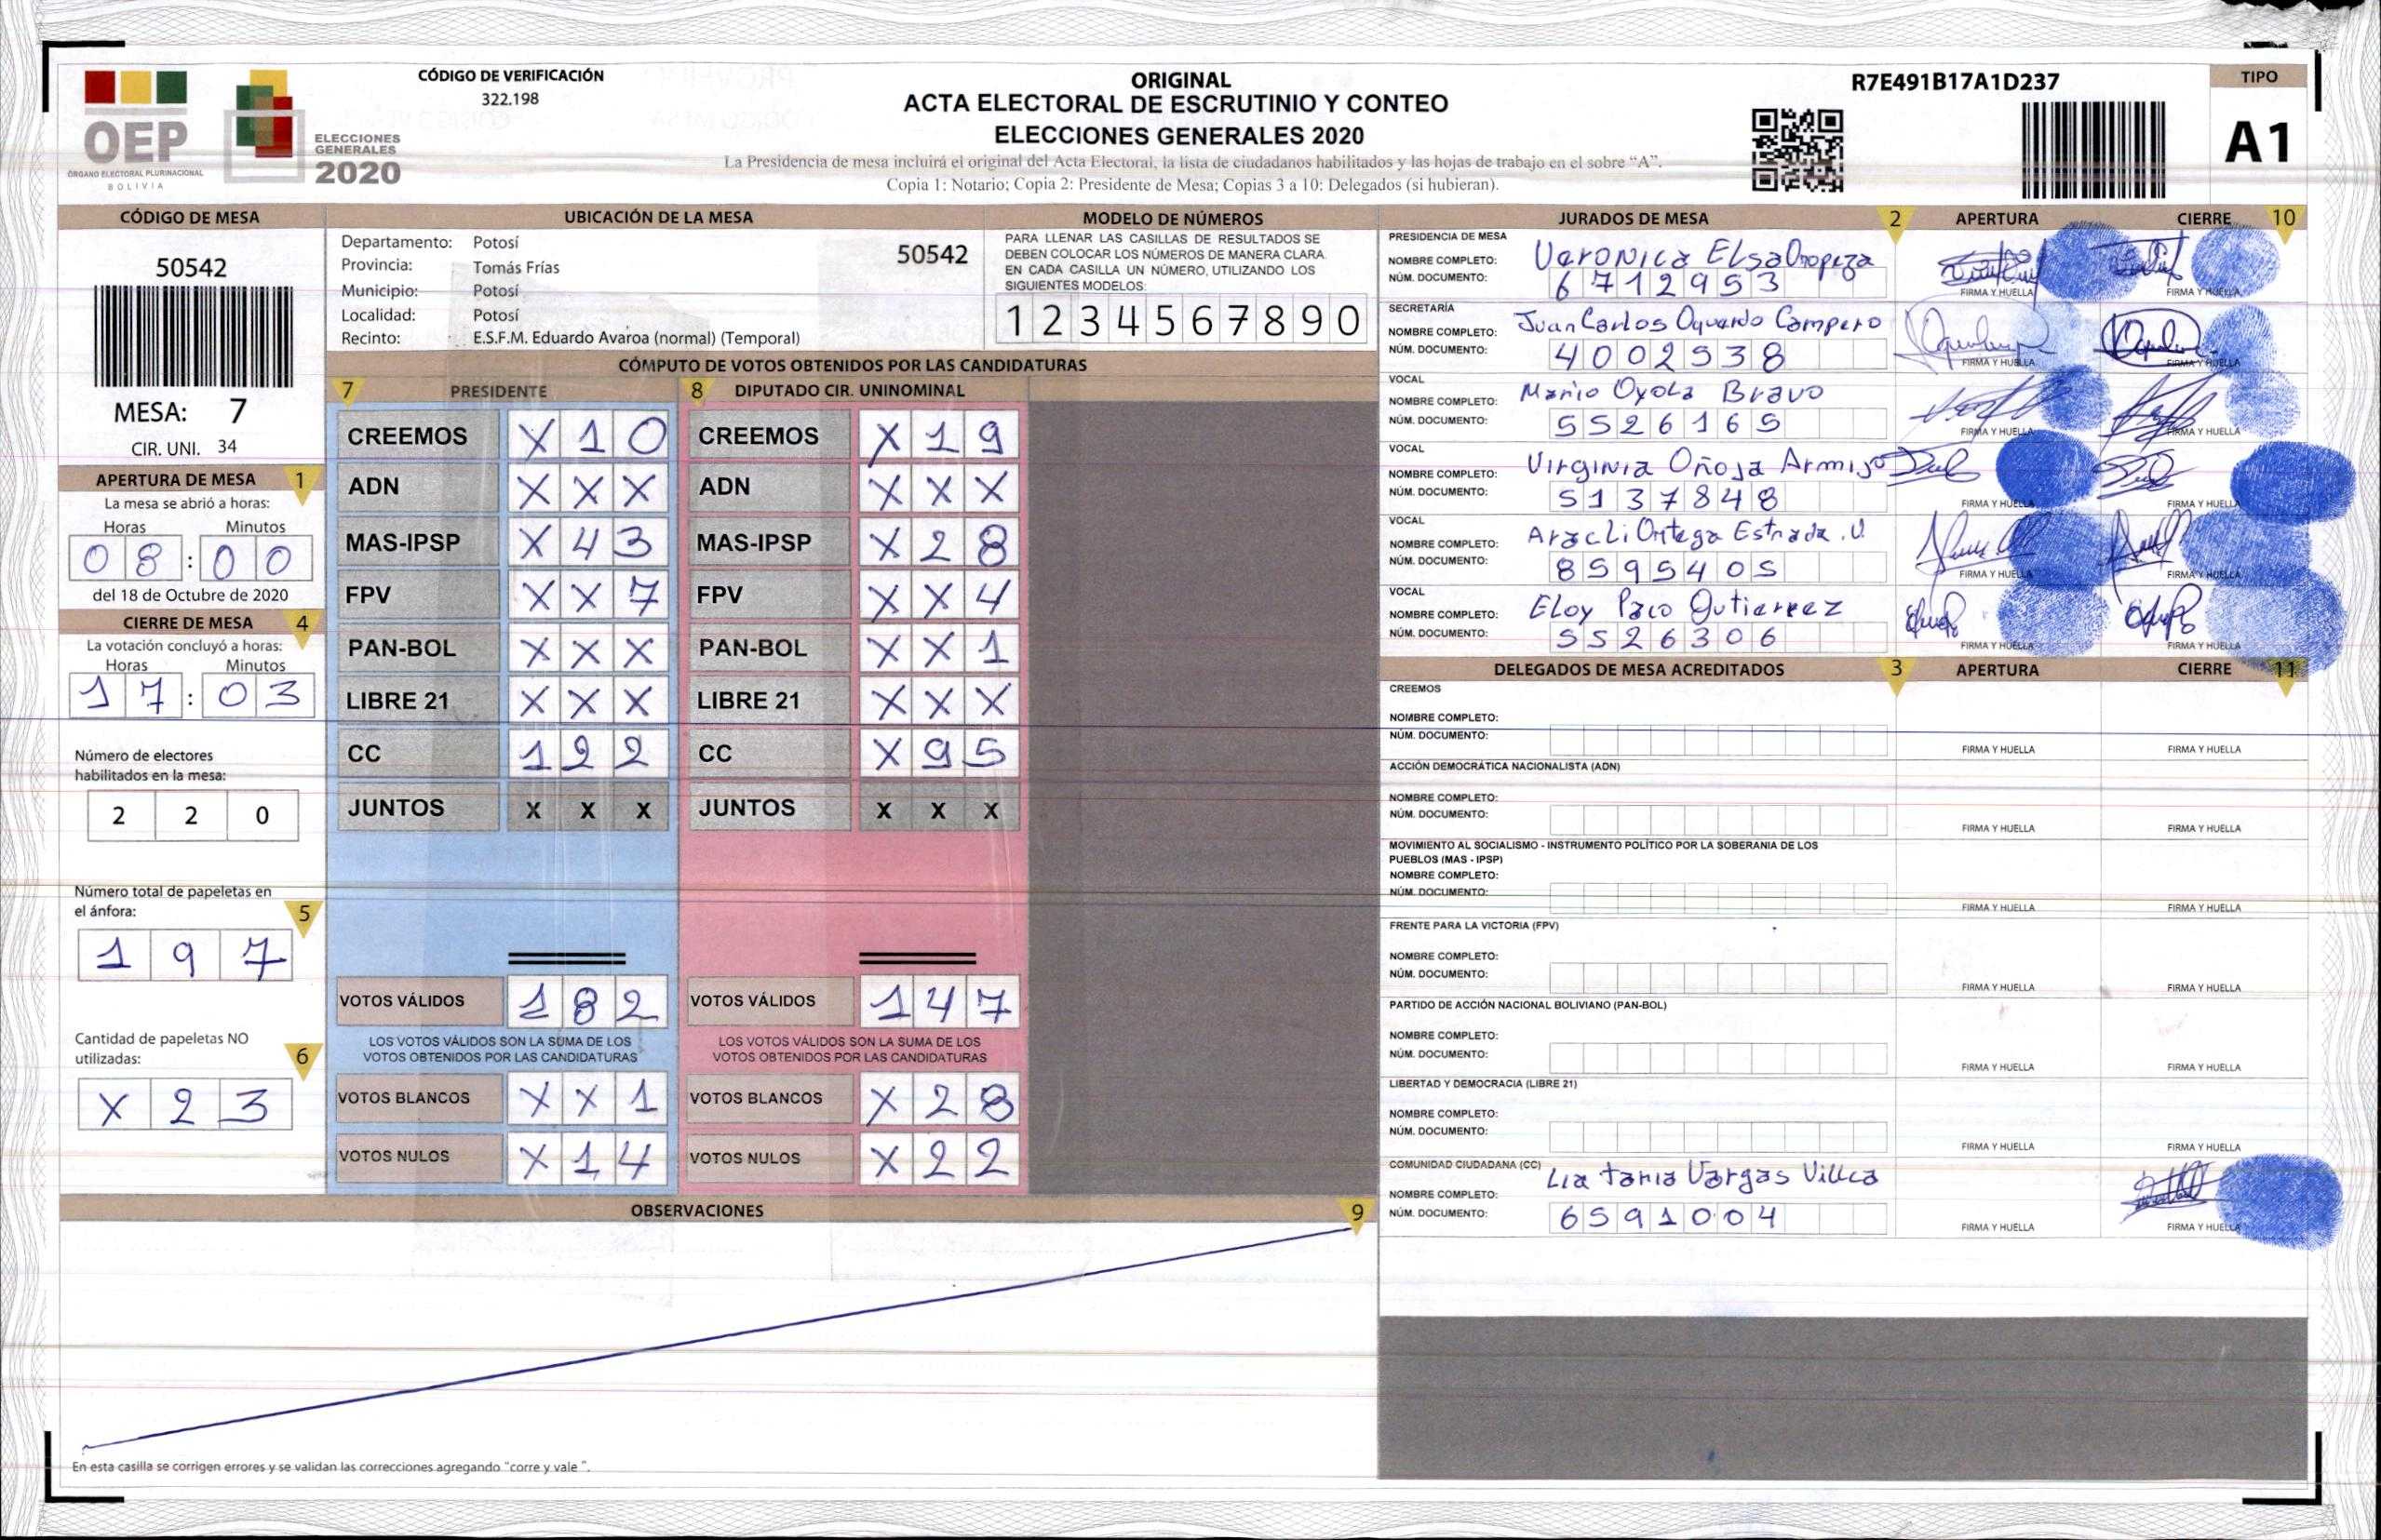 CÓDIGO DE VERIFICACIÓN
322.198
OEP
ÓRGANO ELECTORAL PLURINACIONAL
BOLIVIA
ELECCIONES
GENERALES
2020
ORIGINAL
ACTA ELECTORAL DE ESCRUTINIO Y CONTEO
ELECCIONES GENERALES 2020
La Presidencia de mesa incluirá el original del Acta Electoral, la lista de ciudadanos habilitados y las hojas de trabajo en el sobre “A”.
Copia 1: Notario; Copia 2: Presidente de Mesa; Copias 3 a 10: Delegados (si hubieran).
R7E491B17A1D237
TIPO
A1
CÓDIGO DE MESA
50542
MESA: 7
CIR. UNI. 34
APERTURA DE MESA 1
La mesa se abrió a horas:
Horas Minutos
08:00
del 18 de Octubre de 2020
CIERRE DE MESA 4
La votación concluyó a horas:
Horas Minutos
17:03
Número de electores
habilitados en la mesa:
2 2 0
Número total de papeletas en
el ánfora: 5
1 9 7
Cantidad de papeletas NO
utilizadas: 6
X 2 3
UBICACIÓN DE LA MESA
Departamento: Potosí
50542
Provincia: Tomás Frías
Municipio: Potosí
Localidad: Potosí
Recinto: E.S.F.M. Eduardo Avaroa (normal) (Temporal)
MODELO DE NÚMEROS
PARA LLENAR LAS CASILLAS DE RESULTADOS SE
DEBEN COLOCAR LOS NÚMEROS DE MANERA CLARA.
EN CADA CASILLA UN NÚMERO, UTILIZANDO LOS
SIGUIENTES MODELOS:
1 2 3 4 5 6 7 8 9 0
CÓMPUTO DE VOTOS OBTENIDOS POR LAS CANDIDATURAS
7 PRESIDENTE 8 DIPUTADO CIR. UNINOMINAL
CREEMOS X 1 0 CREEMOS X 1 9
ADN X X X ADN X X X
MAS-IPSP X 4 3 MAS-IPSP X 2 8
FPV X X 7 FPV X X 4
PAN-BOL X X X PAN-BOL X X 1
LIBRE 21 X X X LIBRE 21 X X X
CC 1 2 2 CC X 9 5
JUNTOS X X X JUNTOS X X X
VOTOS VÁLIDOS 1 8 2 VOTOS VÁLIDOS 1 4 7
LOS VOTOS VÁLIDOS SON LA SUMA DE LOS LOS VOTOS VÁLIDOS SON LA SUMA DE LOS
VOTOS OBTENIDOS POR LAS CANDIDATURAS VOTOS OBTENIDOS POR LAS CANDIDATURAS
VOTOS BLANCOS X X 1 VOTOS BLANCOS X 2 8
VOTOS NULOS X 1 4 VOTOS NULOS X 2 2
OBSERVACIONES 9
En esta casilla se corrigen errores y se validan las correcciones agregando "corre y vale ".
JURADOS DE MESA 2 APERTURA CIERRE 10
PRESIDENCIA DE MESA
NOMBRE COMPLETO: Veronica Elsa Oropeza
NÚM. DOCUMENTO: 6712953
FIRMA Y HUELLA FIRMA Y HUELLA
SECRETARÍA
NOMBRE COMPLETO: Juan Carlos Oquendo Campero
NÚM. DOCUMENTO: 4002538
FIRMA Y HUELLA FIRMA Y HUELLA
VOCAL
NOMBRE COMPLETO: Mario Oyola Bravo
NÚM. DOCUMENTO: 5526165
FIRMA Y HUELLA FIRMA Y HUELLA
VOCAL
NOMBRE COMPLETO: Virginia Oñoja Armijo
NÚM. DOCUMENTO: 5137848
FIRMA Y HUELLA FIRMA Y HUELLA
VOCAL
NOMBRE COMPLETO: Aracli Ortega Estrada .V.
NÚM. DOCUMENTO: 8595405
FIRMA Y HUELLA FIRMA Y HUELLA
VOCAL
NOMBRE COMPLETO: Eloy Paco Gutierrez
NÚM. DOCUMENTO: 5526306
FIRMA Y HUELLA FIRMA Y HUELLA
DELEGADOS DE MESA ACREDITADOS 3 APERTURA CIERRE 11
CREEMOS
NOMBRE COMPLETO:
NÚM. DOCUMENTO:
FIRMA Y HUELLA FIRMA Y HUELLA
ACCIÓN DEMOCRÁTICA NACIONALISTA (ADN)
NOMBRE COMPLETO:
NÚM. DOCUMENTO:
FIRMA Y HUELLA FIRMA Y HUELLA
MOVIMIENTO AL SOCIALISMO - INSTRUMENTO POLÍTICO POR LA SOBERANIA DE LOS
PUEBLOS (MAS - IPSP)
NOMBRE COMPLETO:
NÚM. DOCUMENTO:
FIRMA Y HUELLA FIRMA Y HUELLA
FRENTE PARA LA VICTORIA (FPV)
NOMBRE COMPLETO:
NÚM. DOCUMENTO:
FIRMA Y HUELLA FIRMA Y HUELLA
PARTIDO DE ACCIÓN NACIONAL BOLIVIANO (PAN-BOL)
NOMBRE COMPLETO:
NÚM. DOCUMENTO:
FIRMA Y HUELLA FIRMA Y HUELLA
LIBERTAD Y DEMOCRACIA (LIBRE 21)
NOMBRE COMPLETO:
NÚM. DOCUMENTO:
FIRMA Y HUELLA FIRMA Y HUELLA
COMUNIDAD CIUDADANA (CC)
NOMBRE COMPLETO: Lia Tania Vargas Villca
NÚM. DOCUMENTO: 6591004
FIRMA Y HUELLA FIRMA Y HUELLA